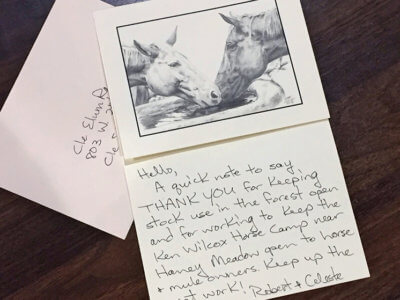 Cle Elum R
803 W 2
Cle
Hello,
A quick note to say
THANK YOU for keeping
stock use in the forest open
and for working to keep the
Ken Wilcox Horse Camp near
Haney Meadow open to horse
+ mule owners. Keep up the
work!
Robert + Celeste